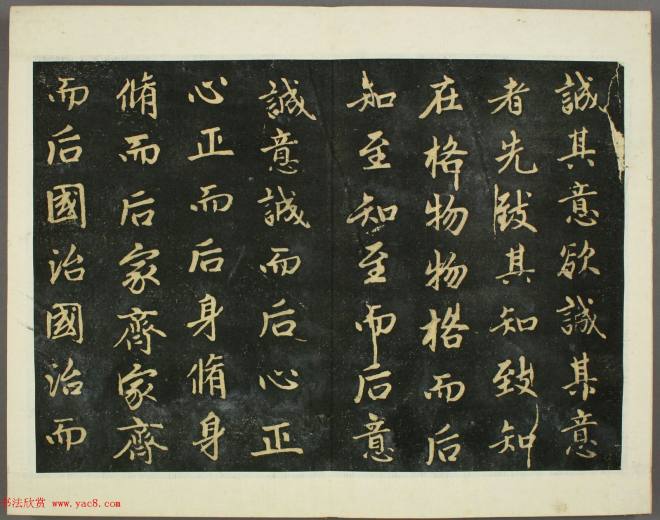 誠其意欲誠其意
者先致其知致知
在格物物格而后
知至知至而后意
誠意誠而后心正
心正而后身脩身
脩而后家齊家齊
而后國治國治而
书法欣赏 www.yac8.com